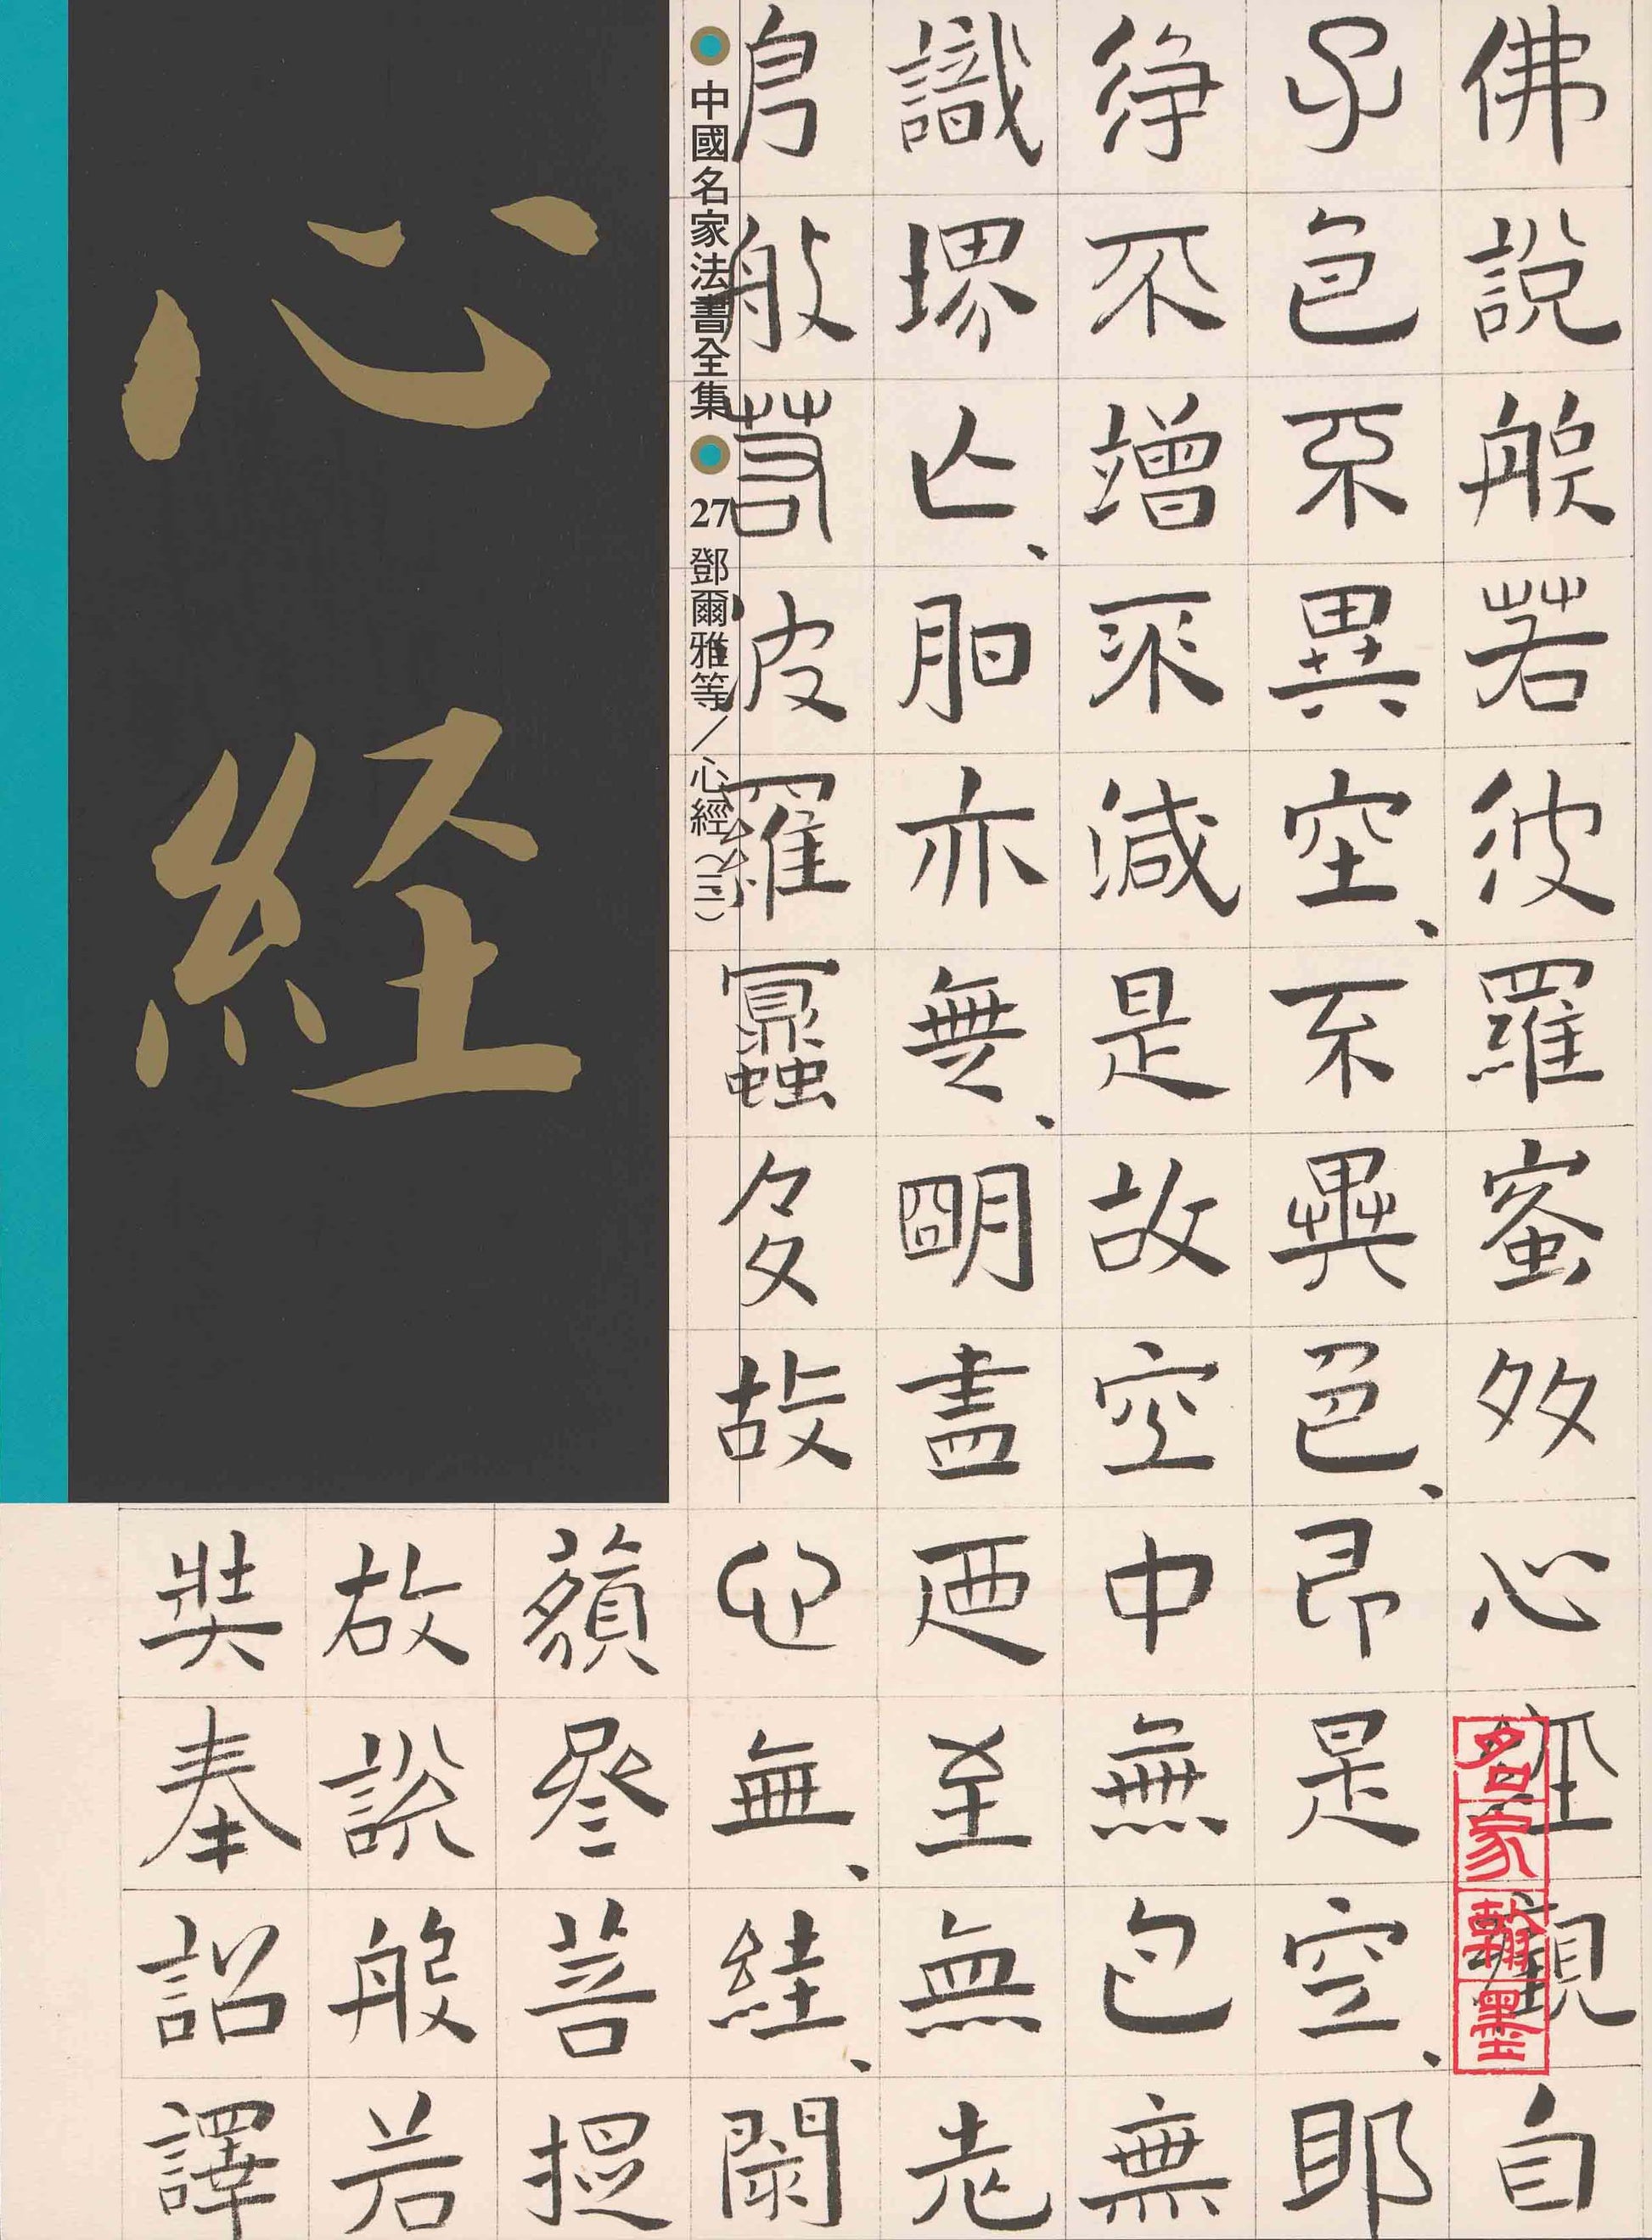 心経
中國名家法書全集
27 鄧爾雅等／心經（三）
佛說般若波羅蜜多心經觀自
子色不異空、不異色、即是空、耶
淨不增不減是故空中無色無
識界亡、亦無、明盡迺至無老
般若波羅蜜多故心無、絓、閡
藐参菩提
故說般若
奘奉詔譯
名家翰墨